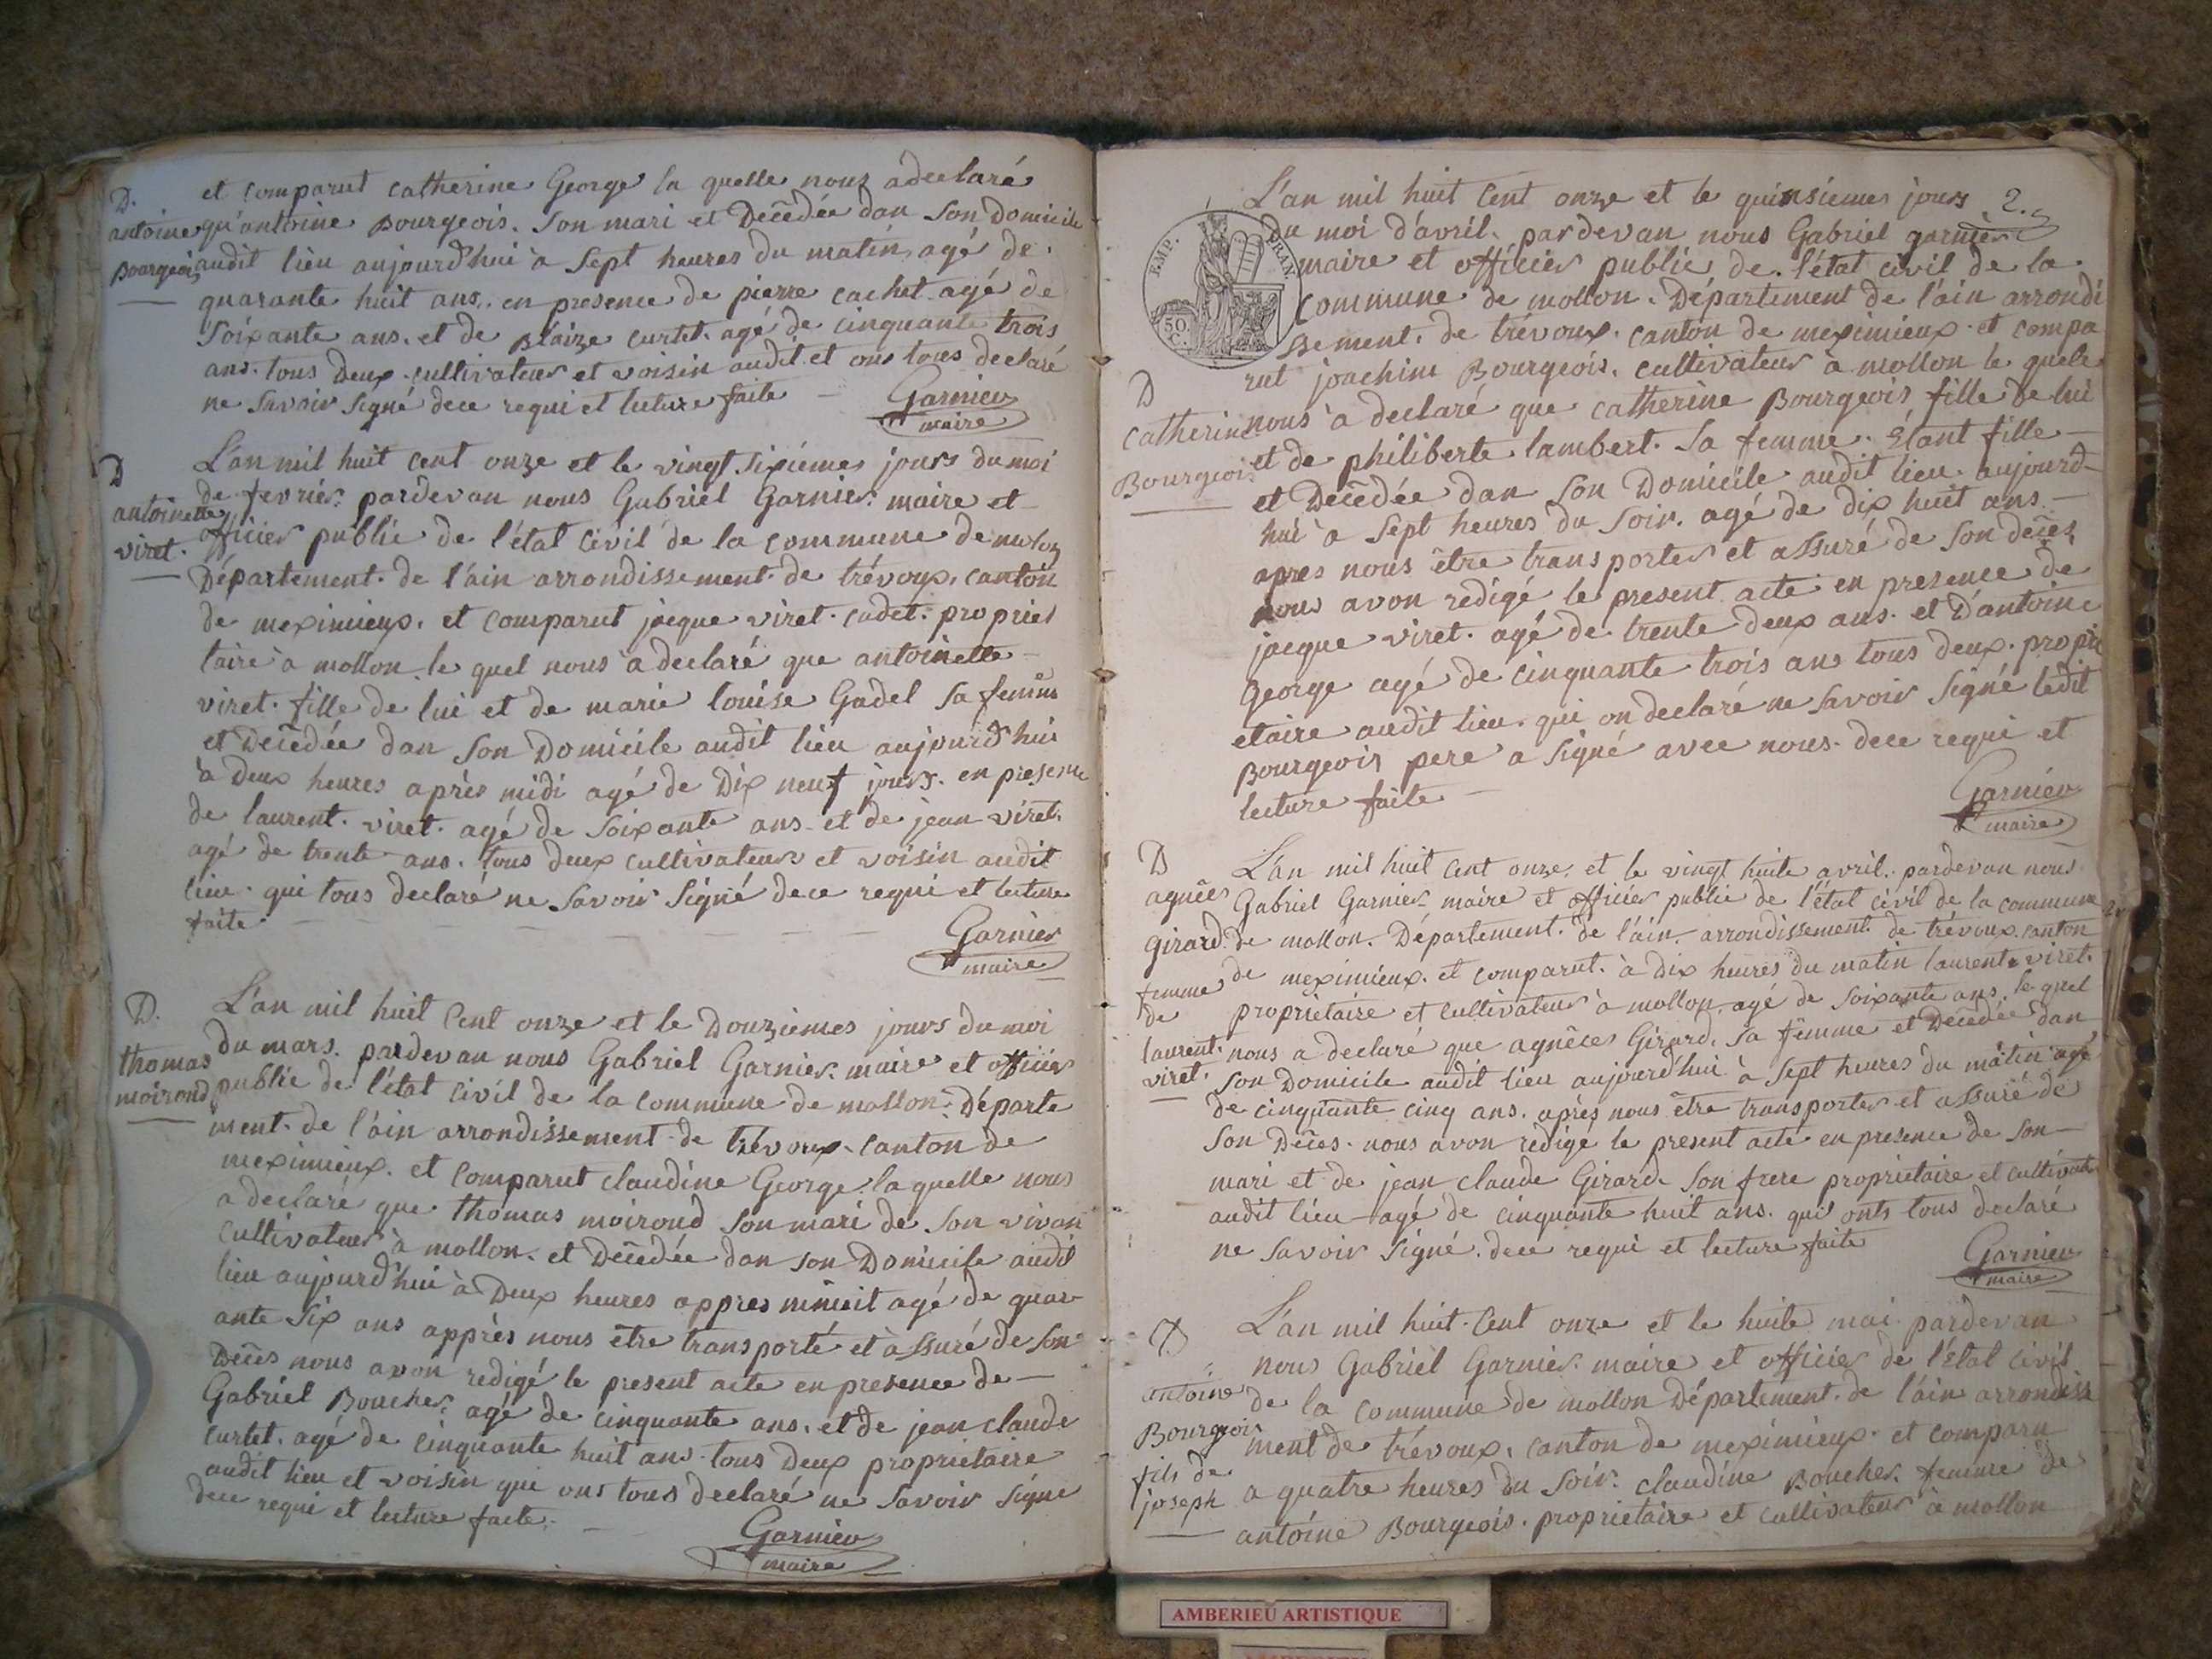 D.
antoine
Bourgeois
et comparut catherine George la quelle nous a declaré
qu'antoine Bourgeois. son mari et Decedée dan son Domicile
audit lieu aujourd'hui a sept heures du matin, agé de
quarante huit ans. en presence de pierre cachet agé de
soixante ans. et de Blaize curtet. agé de cinquante trois
ans. tous deux cultivateur et voisin audit et ons tous declaré
ne savoir signé dece requi et lecture faite
Garnier
maire
D
antoinette
viret.
L'an mil huit cent onze et le vingt sixiemes jours du moi
de fevrier. pardevan nous Gabriel Garnier. maire et
officier public de l'état civil de la commune de molon
Département. de l'ain arrondissement. de trévoux. canton
de meximieux. et comparut jacque viret. cadet. propriet
taire à mollon. le quel nous a declaré que antoinette
viret. fille de lui et de marie louise Gadel sa femme
et Decedée dan son Domicile audit lieu aujourd'hui
à deux heures après midi agé de Dix neuf jours. en presence
de laurent. viret. agé de soixante ans. et de jean viret.
agé de trente ans. tous deux cultivateur et voisin audit
lieu. qui tous declaré ne savoir signé dece requi et lecture
faite
Garnier
maire
D.
thomas
moirond
L'an mil huit cent onze et le Douziemes jours du moi
du mars. pardevan nous Gabriel Garnier. maire et officier
public de l'état civil de la commune de mollon. Départe
ment. de l'ain arrondissement de trévoux. canton de
meximieux. et comparut claudine George. la quelle nous
a declaré que thomas moirond son mari de son vivan
cultivateur à mollon. et Decedée dan son Domicile audit
lieu aujourd'hui à Deux heures appres minuit agé de quar-
ante six ans apprès nous être transporté et assuré de son
Deces nous avon redigé le present acte en presence de
Gabriel Boucher. agé de cinquante ans. et de jean claude
curtet. agé de cinquante huit ans. tous Deux proprietaire
audit lieu et voisin qui ons tous declaré ne savoir signe
dece requi et lecture faite.
Garnier
maire
2.
EMP. FRAN.
50. C.
L'an mil huit cent onze et le quinsiemes jours
du moi d'avril. pardevan nous Gabriel garnier
maire et officier public de. l'état civil de la
commune de mollon. Département de l'ain arrondi
ssement. de trévoux. canton de meximieux. et compa
rut joachim Bourgeois. cultivateur à mollon le quele
D
Catherine
Bourgeois
nous a declaré que catherine Bourgeois fille de lui
et de philiberte lambert. sa femme. Étant fille
et Decedée dan son Domicile audit lieu. aujourd-
hui à sept heures du soir. agé de dix huit ans
apres nous être transporter et assuré de son deces
nous avon redigé le present acte en presence de
jacque viret. agé de trente deux ans. et D'antoine
George agé de cinquante trois ans tous deux. propri
etaire audit lieu. qui on declaré ne savoir signé ledit
Bourgeois pere a signé avec nous. dece requi et
lecture faite
Garnier
maire
D
agnèes
Girard
femme
de
laurent.
viret.
L'an mil huit cent onze. et le vingt huite avril. pardevan nous
Gabriel Garnier maire et officier public de l'état civil de la commune
de mollon. Département. de l'ain. arrondissement de trévoux. canton
de meximieux. et comparut. à dix heures du matin laurent viret.
proprietaire et cultivateur à mollon. agé de soixante ans. le quel
nous a declaré que agnèces Girard. sa femme et Decedée dan
son Domicile audit lieu aujourd'hui à sept heures du matin agé
de cinquante cinq ans. après nous être transporter et assuré de
son Deces. nous avon redigé le present acte en presence de son
mari et de jean claude Girard. son frere proprietaire et cultivate
audit lieu agé de cinquante huit ans. qui onts tous declaré
ne savoir signé. dece requi et lecture faite
Garnier
maire
D
antoine
Bourgeois
fils de
joseph
L'an mil huit. cent onze et le huite mai. pardevan
nous Gabriel Garnier. maire et officier de l'état civil
de la commune de mollon Département. de l'ain arrondiss
ment de trévoux. canton de meximieux. et comparu
a quatre heures du soir. claudine Boucher. femme de
antoine Bourgeois. proprietaire et cultivateur à mollon
AMBERIEU ARTISTIQUE